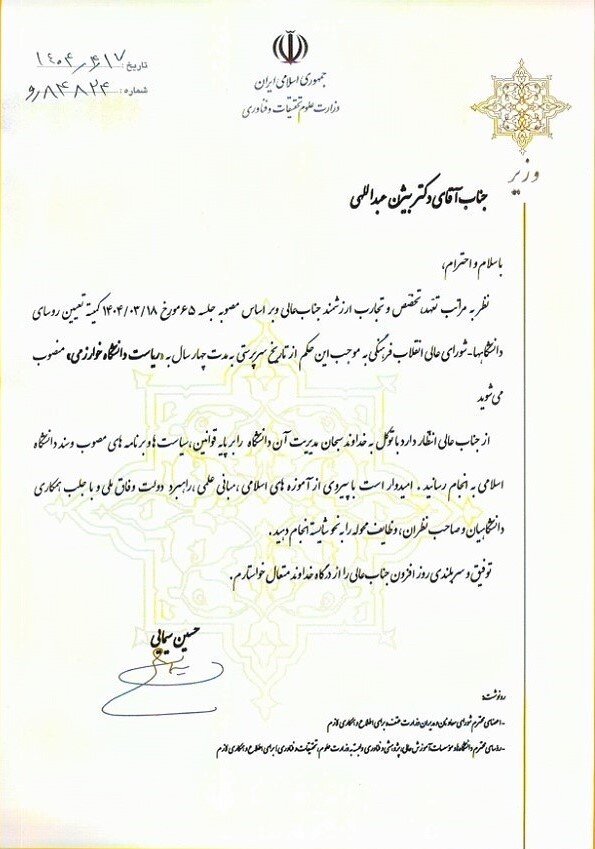 جمهوری اسلامی ایران
وزارت علوم تحقیقات و فناوری
تاریخ: ۱۴۰۴/۴/۱۷
شماره: ۸۴۸۲۴/و
وزیر
جناب آقای دکتر بیژن عبداللهی
باسلام و احترام،
نظر به مراتب تعهد، تخصص و تجارب ارزشمند جناب‌عالی و بر اساس مصوبه جلسه ۶۵ مورخ ۱۴۰۴/۰۳/۱۸ کمیته تعیین روسای
دانشگاهها-شورای عالی انقلاب فرهنگی به موجب این حکم از تاریخ سرپرستی به مدت چهار سال به «ریاست دانشگاه خوارزمی» منصوب
می‌شوید
از جناب عالی انتظار دارد با توکل به خداوند سبحان مدیریت آن دانشگاه را بر پایه قوانین، سیاست‌ها و برنامه های مصوب وسند دانشگاه
اسلامی به انجام رسانید. امیدوار است با پیروی از آموزه های اسلامی، مبانی علمی، راهبرد دولت وفاق ملی و با جلب همکاری
دانشگاهیان و صاحب نظران، وظایف محوله را به نحو شایسته انجام دهید.
توفیق و سربلندی روز افزون جناب‌عالی را از درگاه خداوند متعال خواستارم.
حسین سیمایی
رونوشت:
-اعضای محترم شورای معاونان و مدیران وزارت متبوع برای اطلاع و همکاری لازم
-روسای محترم دانشگاه‌ها و مؤسسات آموزش عالی، پژوهشی و فناوری وابسته به وزارت علوم، تحقیقات و فناوری برای اطلاع و همکاری لازم